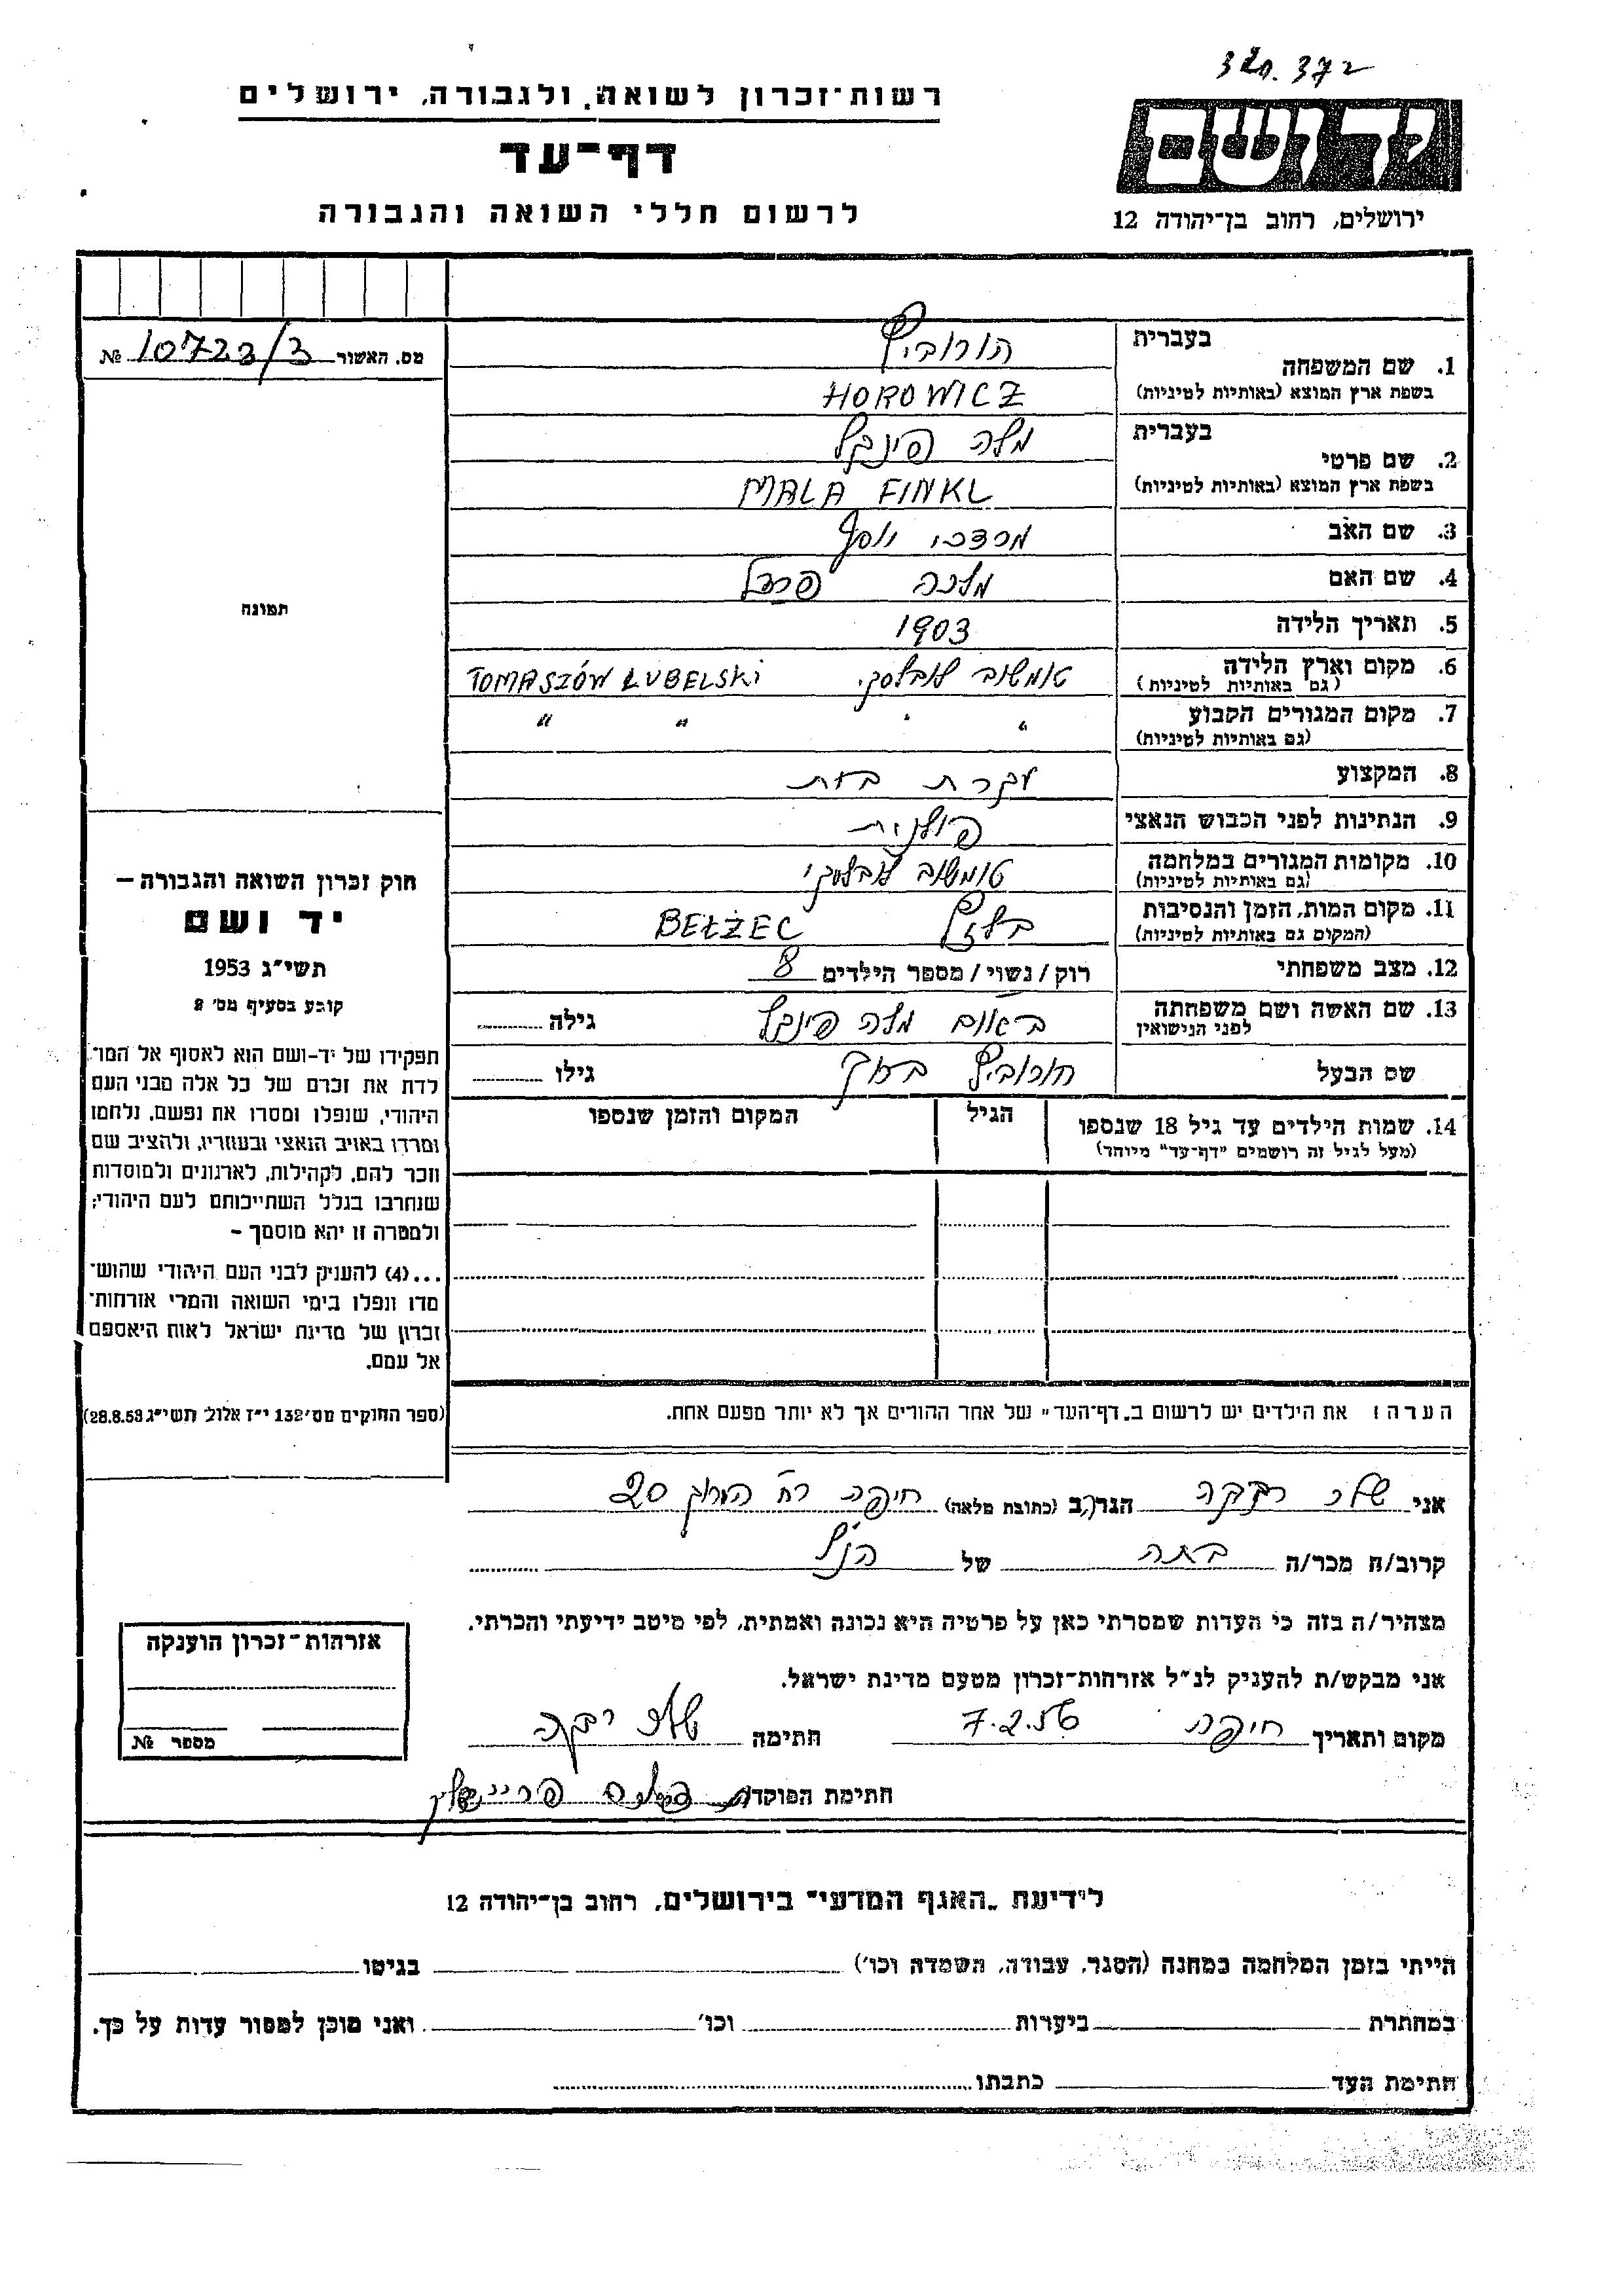 320.372
רשות־זכרון לשואה ולגבורה, ירושלים
יד ושם
דף־עד
ירושלים, רחוב בן־יהודה 12
לרשום חללי השואה והגבורה
מס. האשור № 10723/3
תמונה
חוק זכרון השואה והגבורה –
יד ושם
תשי״ג 1953
קובע בסעיף מס׳ 8
תפקידו של יד-ושם הוא לאסוף אל המו־
לדת את זכרם של כל אלה מבני העם
היהודי, שנפלו ומסרו את נפשם, נלחמו
ומרדו באויב הנאצי ובעוזריו, ולהציב שם
וזכר להם, לקהילות, לארגונים ולמוסדות
שנחרבו בגלל השתייכותם לעם היהודי;
ולמטרה זו יהא מוסמך –
...(4) להעניק לבני העם היהודי שהוש־
מדו ונפלו בימי השואה והמרי אזרחות־
זכרון של מדינת ישראל לאות היאספם
אל עמם.
(ספר החוקים מס׳ 132 י״ז אלול תשי״ג 28.8.53)
בעברית הורוביץ
1. שם המשפחה
בשפת ארץ המוצא (באותיות לטיניות) HOROWICZ
בעברית מלה פינקל
2. שם פרטי
בשפת ארץ המוצא (באותיות לטיניות) MALA FINKL
3. שם האב מרדכי יוסף
4. שם האם מלכה פרל
5. תאריך הלידה 1903
6. מקום וארץ הלידה טומשוב לובלסקי TOMASZÓW LUBELSKI
(גם באותיות לטיניות)
7. מקום המגורים הקבוע " " " "
(גם באותיות לטיניות)
8. המקצוע עקרת בית
9. הנתינות לפני הכבוש הנאצי פולנית
10. מקומות המגורים במלחמה טומשוב לובלסקי
(גם באותיות לטיניות)
11. מקום המות, הזמן והנסיבות בלזץ BEŁŻEC
(המקום גם באותיות לטיניות)
12. מצב משפחתי רוק/נשוי/מספר הילדים 8
13. שם האשה ושם משפחתה מלה פינקל גילה
לפני הנישואין
שם הבעל הורוביץ ברוך גילו
14. שמות הילדים עד גיל 18 שנספו הגיל המקום והזמן שנספו
(מעל לגיל זה רושמים "דף־עד" מיוחד)
הערה: את הילדים יש לרשום ב„דף־העד" של אחד ההורים אך לא יותר מפעם אחת.
אני רבקה הגר/ה ב (כתובת מלאה) חיפה רח׳ 20
קרוב/ה מכר/ה בתה של הנ״ל
מצהיר/ה בזה כי העדות שמסרתי כאן על פרטיה היא נכונה ואמתית, לפי מיטב ידיעתי והכרתי.
אני מבקש/ת להעניק לנ״ל אזרחות־זכרון מטעם מדינת ישראל.
מקום ותאריך חיפה 7.2.56 חתימה רבקה
חתימת הפוקד
אזרחות־זכרון הוענקה
מספר №
לידיעת „האגף המדעי" בירושלים, רחוב בן־יהודה 12
הייתי בזמן המלחמה במחנה (הסגר, עבודה, השמדה וכו׳) בגיטו
במחתרת ביערות וכו׳ ואני מוכן למסור עדות על כך.
חתימת העד כתבתו